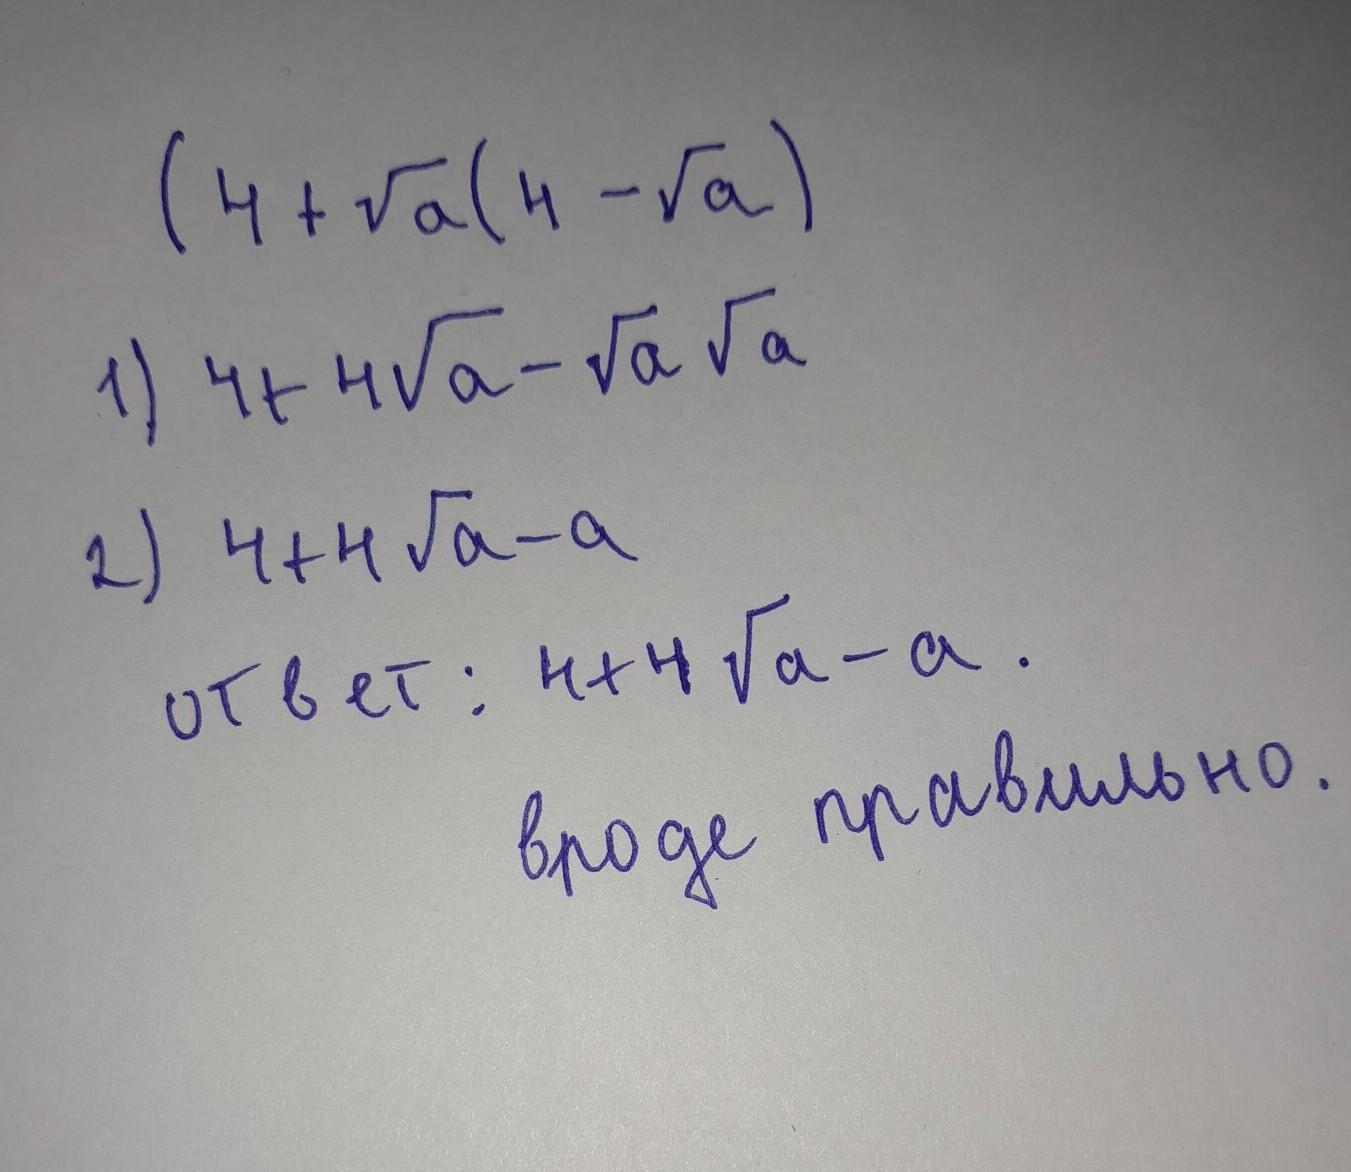 (4+√a(4-√a)
1) 4+4√a-√a√a
2) 4+4√a-a
ответ: 4+4√a-a.
вроде правильно.